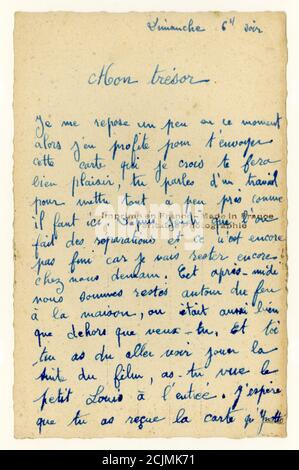 Dimanche 6H soir
Mon trésor.
Je me repose un peu en ce moment
alors j'en profite pour t'envoyer
cette carte qui je crois te fera
bien plaisir, tu parles d'un travail
pour mettre tout a peu près comme
il faut ici. Depuis jeudi que l'on
fait des réparations et ce n'est encore
pas fini car je vais rester encore
chez nous demain. Cet après-midi
nous sommes restés autour du feu
à la maison, on était aussi bien
que dehors que veux-tu. Et toi
tu as du aller voir jouer la
suite du film, as-tu vue le
petit Louis à l'entrée. J'espère
que tu as reçue la carte qu'Yvette
Imprimé en France Made in France
alamy
Image ID: 2CJMK71
www.alamy.com